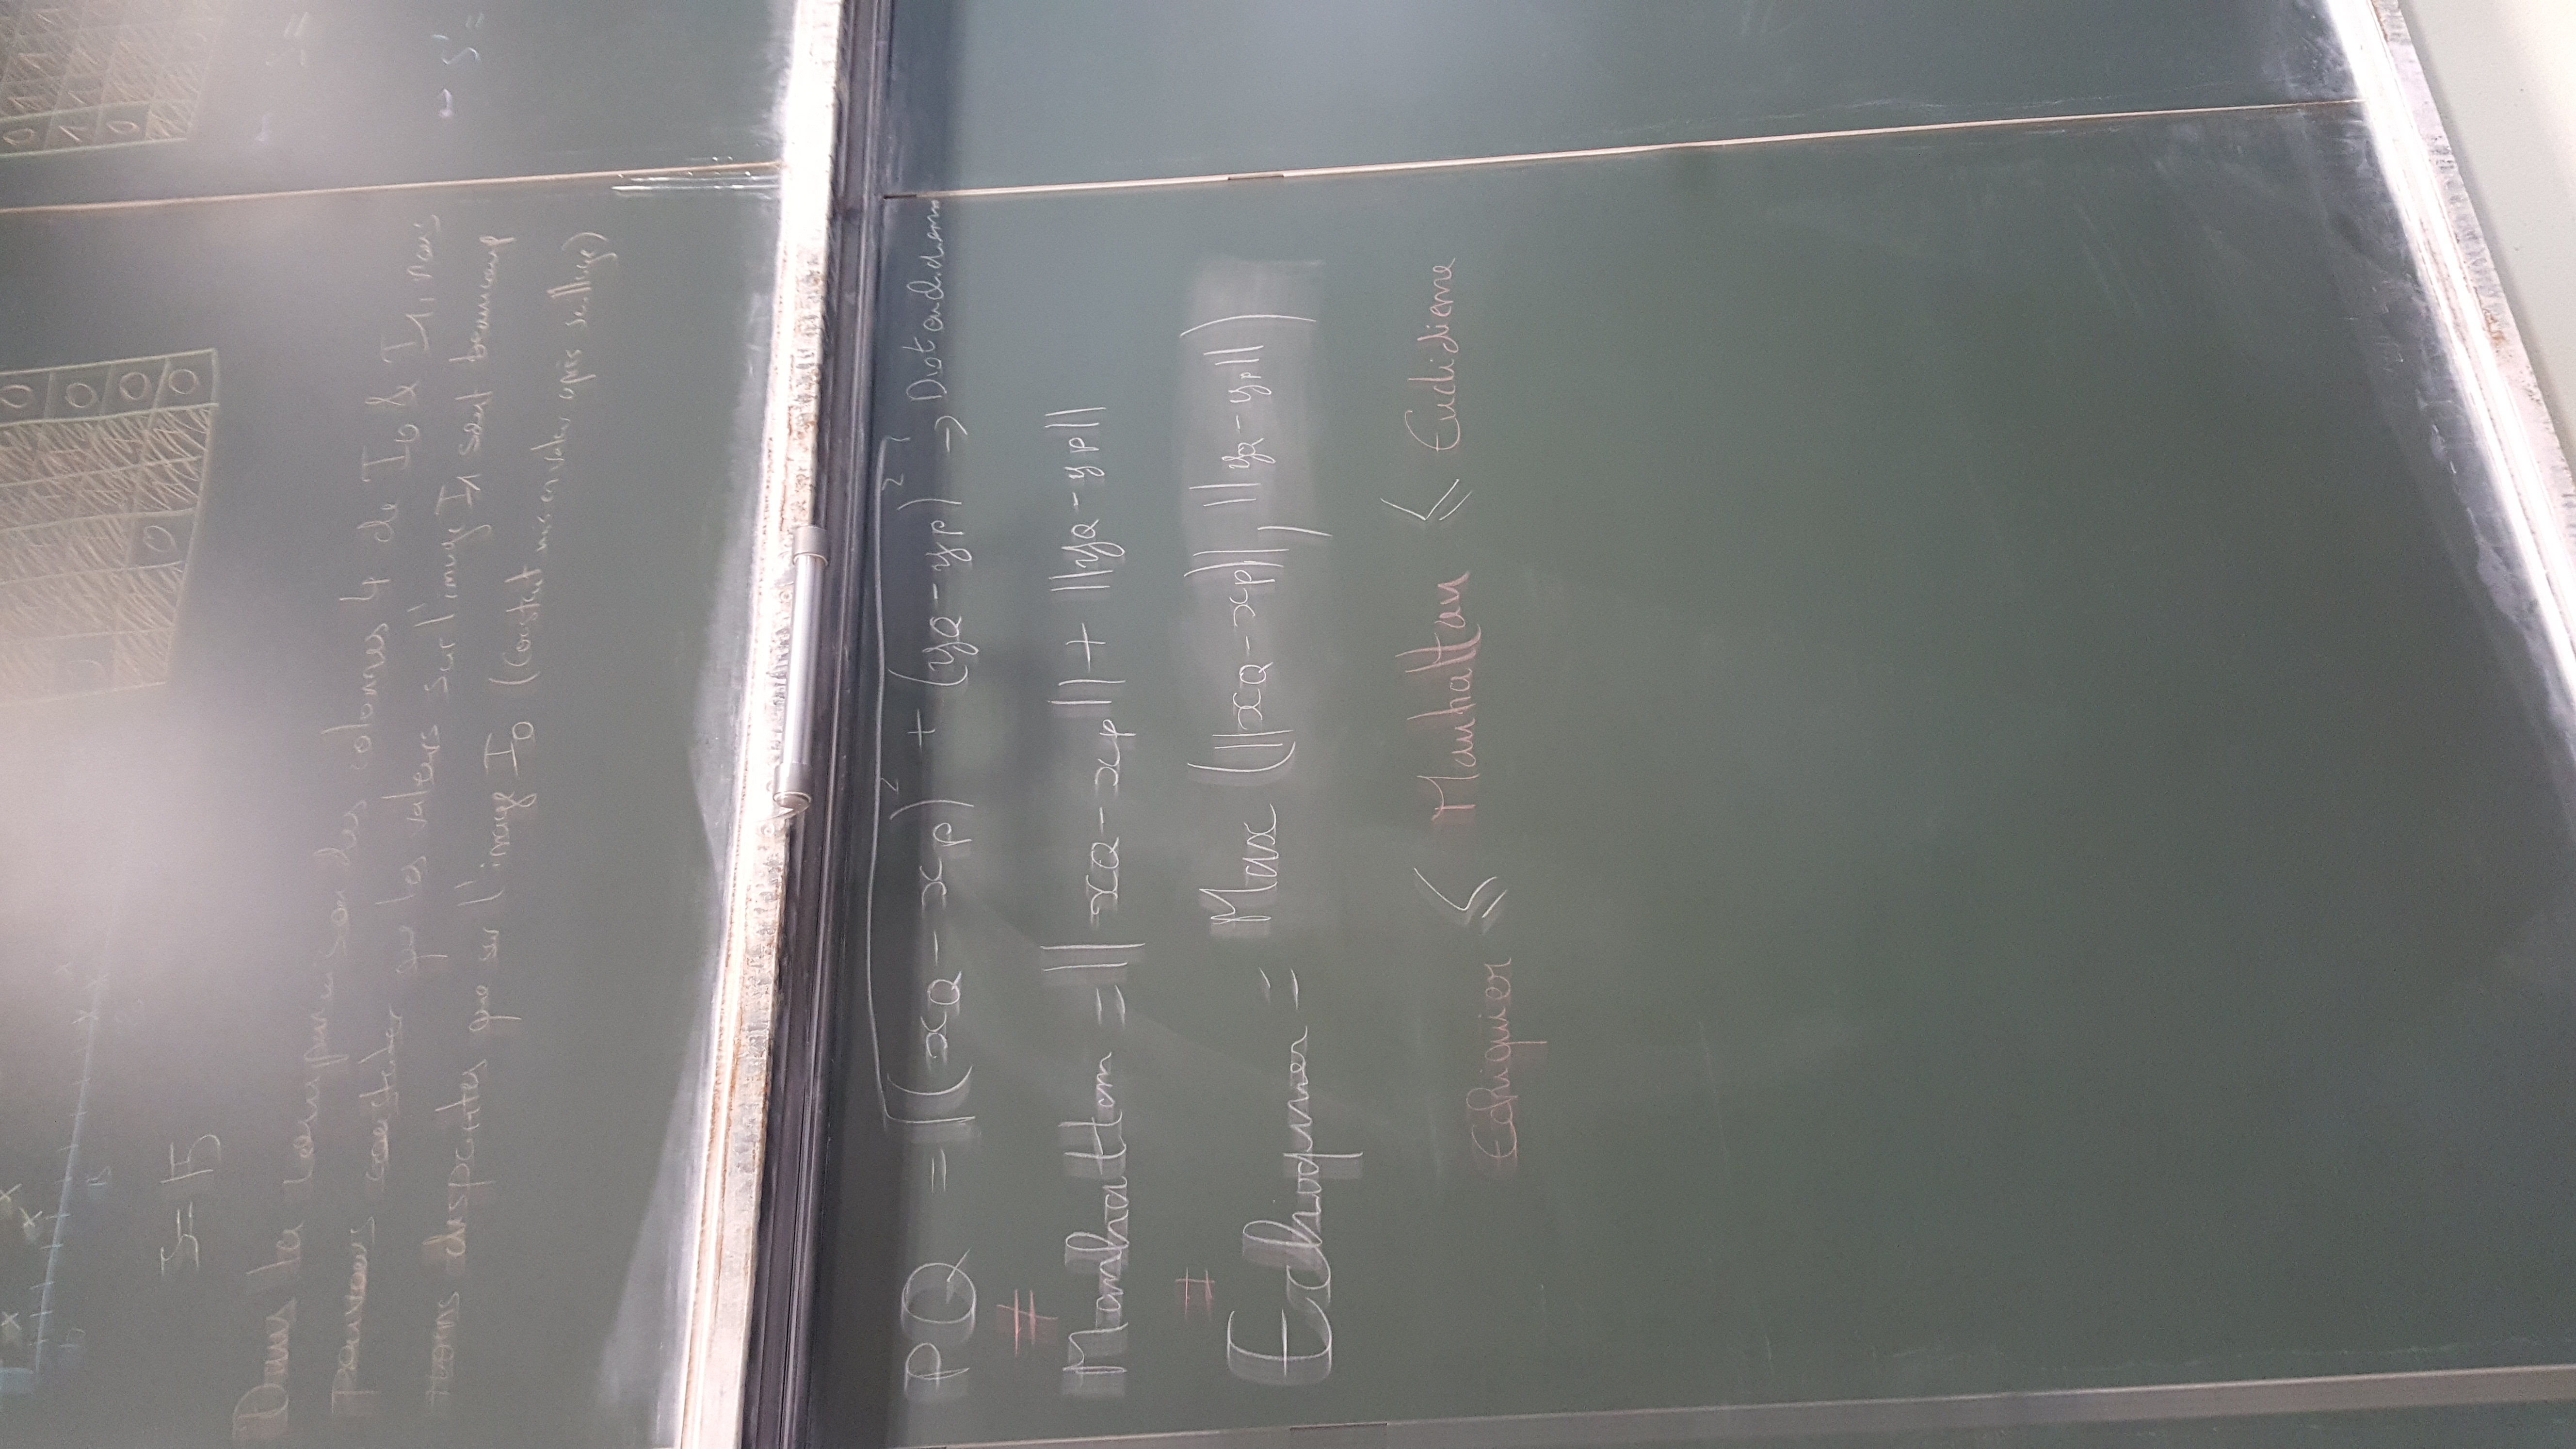 S = 15
0
0
0
0
0
Dans la comparaison des colonnes 4 de I0 & I1, nous
pouvons constater que les valeurs sur l'image I1 sont beaucoup
moins disparites que sur l'image I0 (Constat mis en valeur après seuillage)
S =
S' =
PQ = √((xQ - xP)² + (yQ - yP)²) → Dist euclidienn
≠
Manhattan = ||xQ - xP|| + ||yQ - yP||
≠
Echiquier = Max (||xQ - xP||, ||yQ - yP||)
Echiquier ≤ Manhattan ≤ Euclidienne